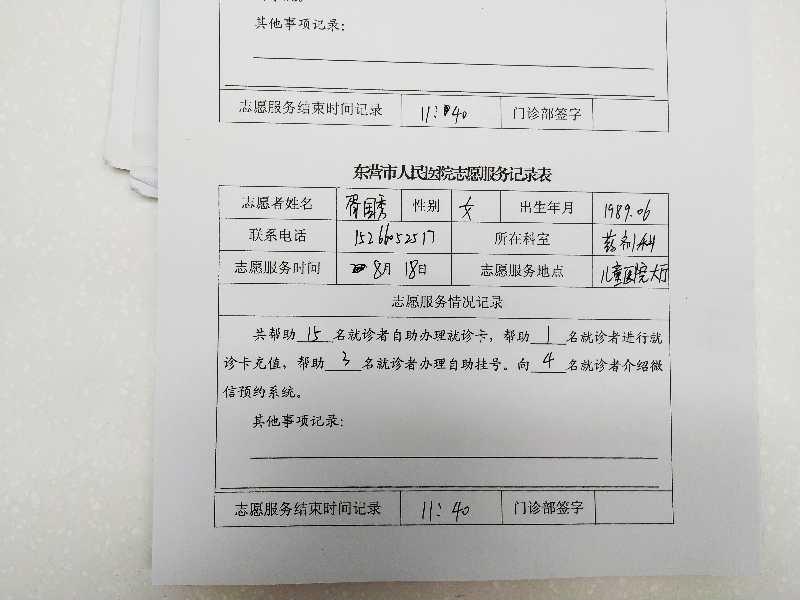 其他事项记录：
志愿服务结束时间记录 11:40 门诊部签字
东营市人民医院志愿服务记录表
志愿者姓名 胥国秀 性别 女 出生年月 1989.06
联系电话 所在科室 药剂科
志愿服务时间 8月 18日 志愿服务地点 儿童医院大厅
志愿服务情况记录
共帮助 15 名就诊者自助办理就诊卡，帮助 1 名就诊者进行就
诊卡充值，帮助 3 名就诊者办理自助挂号。向 4 名就诊者介绍微
信预约系统。
其他事项记录：
志愿服务结束时间记录 11:40 门诊部签字